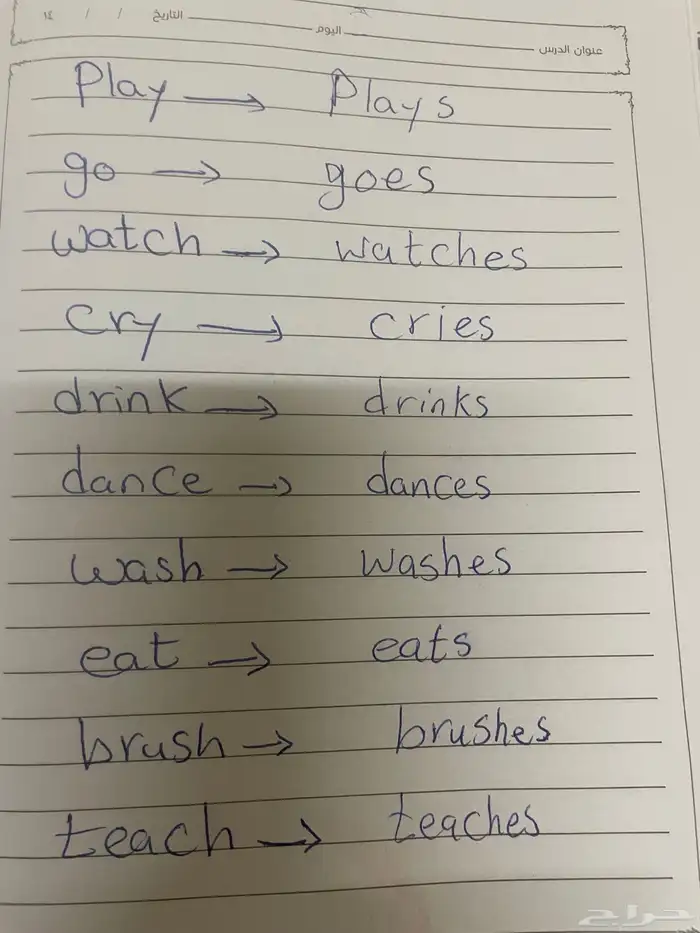 التاريخ / / ١٤
اليوم
عنوان الدرس
Play → Plays
go → goes
watch → watches
cry → cries
drink → drinks
dance → dances
wash → washes
eat → eats
brush → brushes
teach → teaches
حراج